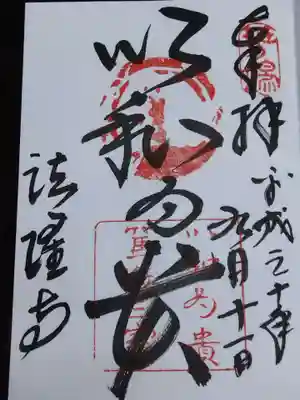 奉拝
平成三十年
九月十一日
以和為貴
法隆寺
以和為貴